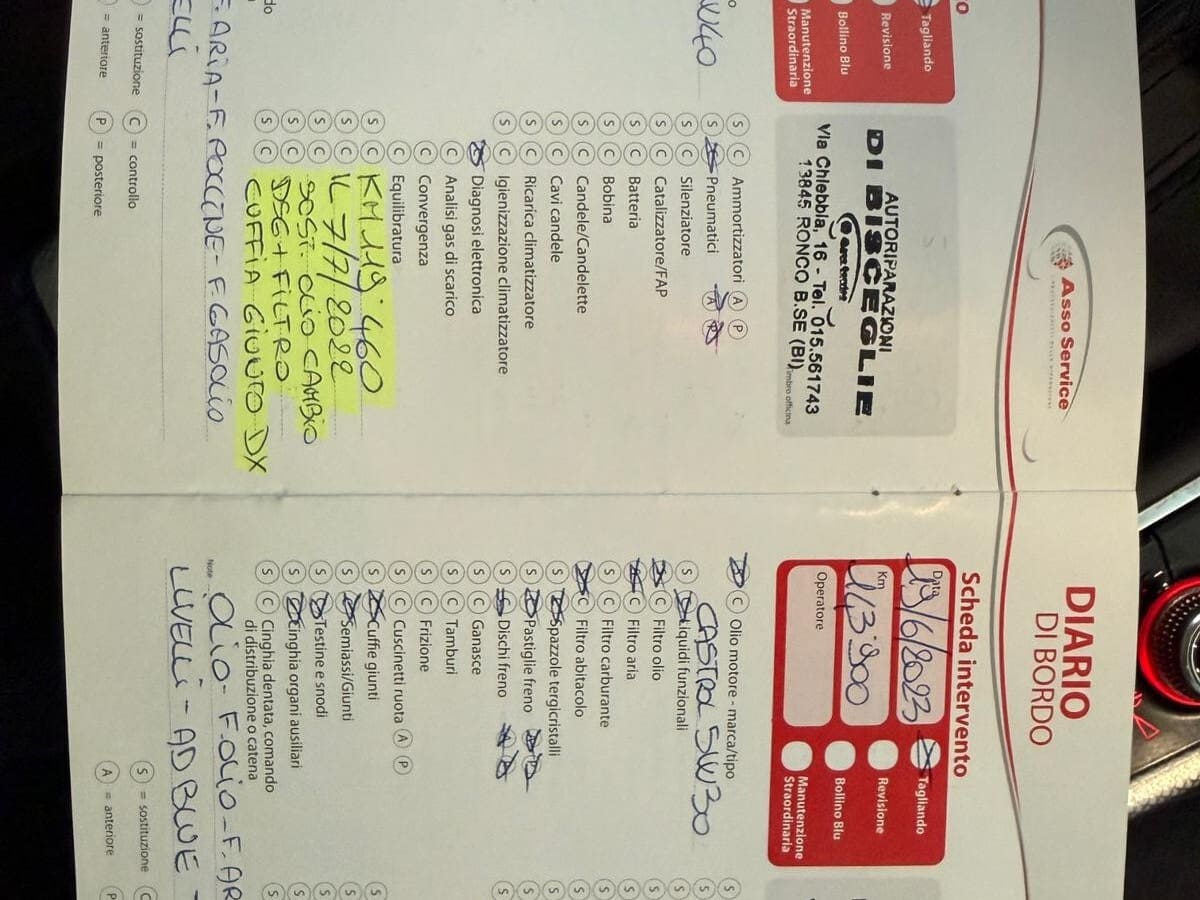 Tagliando
Revisione
Bollino Blu
Manutenzione
Straordinaria
AUTORIPARAZIONI
DI BISCEGLIE
Via Chiebbia, 16 - Tel. 015.561743
13845 RONCO B.SE (BI)
Timbro officina
Asso Service
W40
S C Ammortizzatori A P
S Pneumatici
S C Silenziatore
S C Catalizzatore/FAP
S C Batteria
S C Bobina
S C Candele/Candelette
S C Cavi candele
S C Ricarica climatizzatore
S C Igienizzazione climatizzatore
Diagnosi elettronica
C Analisi gas di scarico
C Convergenza
C Equilibratura
S C KM 119.460
S C IL 7/7/2022
S C SOST. OLIO CAMBIO
S C DSG + FILTRO
S C CUFFIA GIUNTO DX
F. ARIA - F. POLLINE - F. GASOLIO
ELLI
= sostituzione C = controllo
= anteriore P = posteriore
DIARIO
DI BORDO
Scheda intervento
Data 19/6/2023
Km 143.900
Operatore
Tagliando
Revisione
Bollino Blu
Manutenzione
Straordinaria
C Olio motore - marca/tipo
CASTROL 5W30
S Liquidi funzionali
C Filtro olio
C Filtro aria
S C Filtro carburante
C Filtro abitacolo
S Spazzole tergicristalli
S Pastiglie freno
S Dischi freno
S C Ganasce
S C Tamburi
S C Frizione
S C Cuscinetti ruota A P
S Cuffie giunti
S Semiassi/Giunti
S Testine e snodi
S Cinghia organi ausiliari
S C Cinghia dentata, comando
di distribuzione o catena
Note OLIO - F. OLIO - F. AR
LIVELLI - AD BLUE -
S = sostituzione C
A = anteriore P